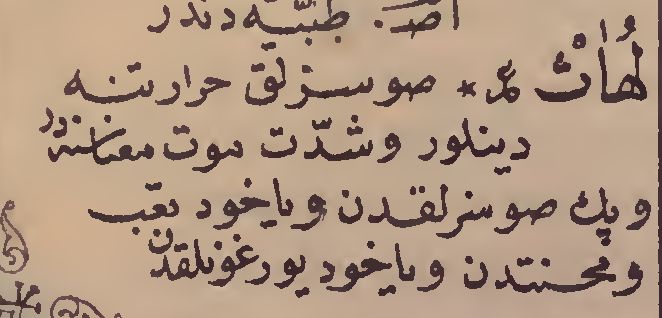 طبيّه دندر
لُهَاثْ ع * صوسزلق حرارتنه
دينلور و شدّت موت معناسنه در
و پك صوسزلقدن و ياخود تعب
و محنتدن و ياخود يورغونلقدن